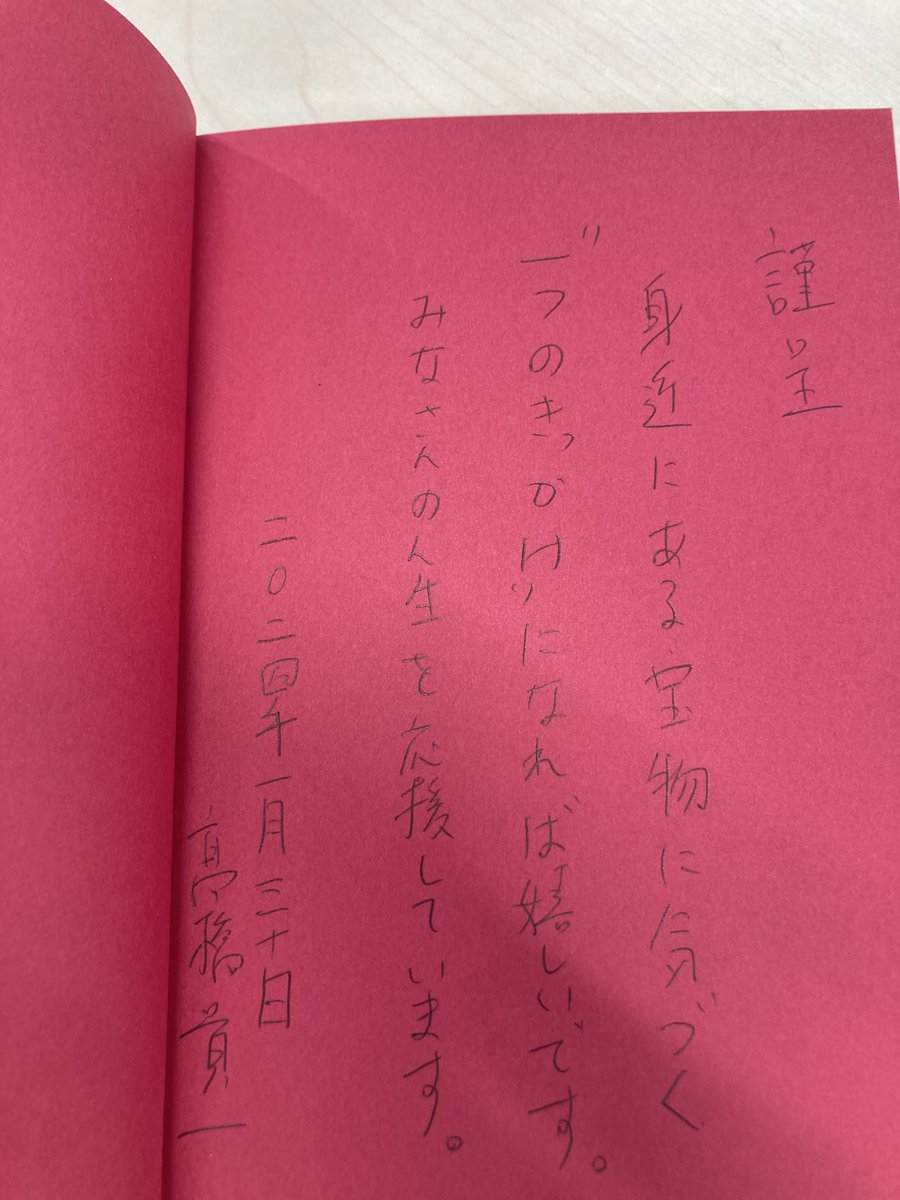 謹呈
身近にある宝物に気づく
"一つのきっかけ"になれば嬉しいです。
みなさんの人生を応援しています。
二〇二四年一月三十日
高橋貢一